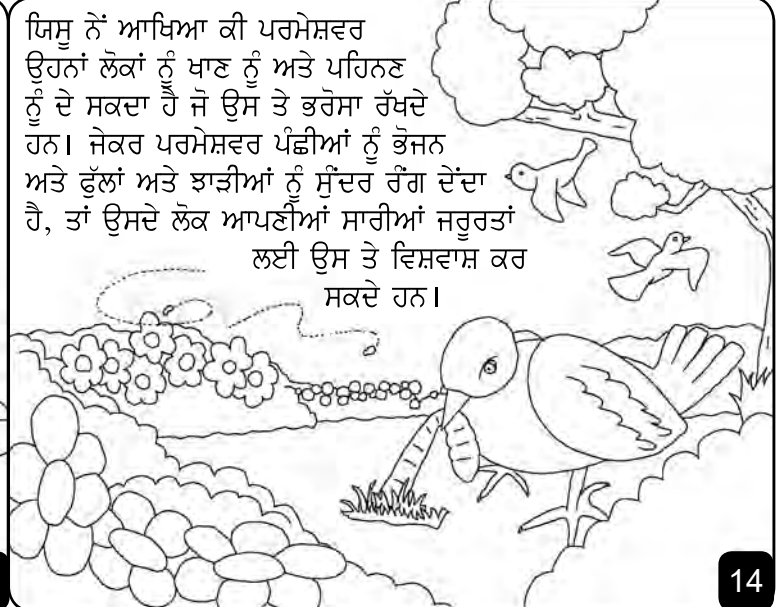 ਯਿਸੂ ਨੇਂ ਆਖਿਆ ਕੀ ਪਰਮੇਸ਼ਵਰ
ਉਹਨਾਂ ਲੋਕਾਂ ਨੂੰ ਖਾਣ ਨੂੰ ਅਤੇ ਪਹਿਨਣ
ਨੂੰ ਦੇ ਸਕਦਾ ਹੈ ਜੋ ਉਸ ਤੇ ਭਰੋਸਾ ਰੱਖਦੇ
ਹਨ। ਜੇਕਰ ਪਰਮੇਸ਼ਵਰ ਪੰਛੀਆਂ ਨੂੰ ਭੋਜਨ
ਅਤੇ ਫੁੱਲਾਂ ਅਤੇ ਝਾੜੀਆਂ ਨੂੰ ਸੁੰਦਰ ਰੰਗ ਦੇਂਦਾ
ਹੈ, ਤਾਂ ਉਸਦੇ ਲੋਕ ਆਪਣੀਆਂ ਸਾਰੀਆਂ ਜਰੂਰਤਾਂ
ਲਈ ਉਸ ਤੇ ਵਿਸ਼ਵਾਸ਼ ਕਰ
ਸਕਦੇ ਹਨ।
14